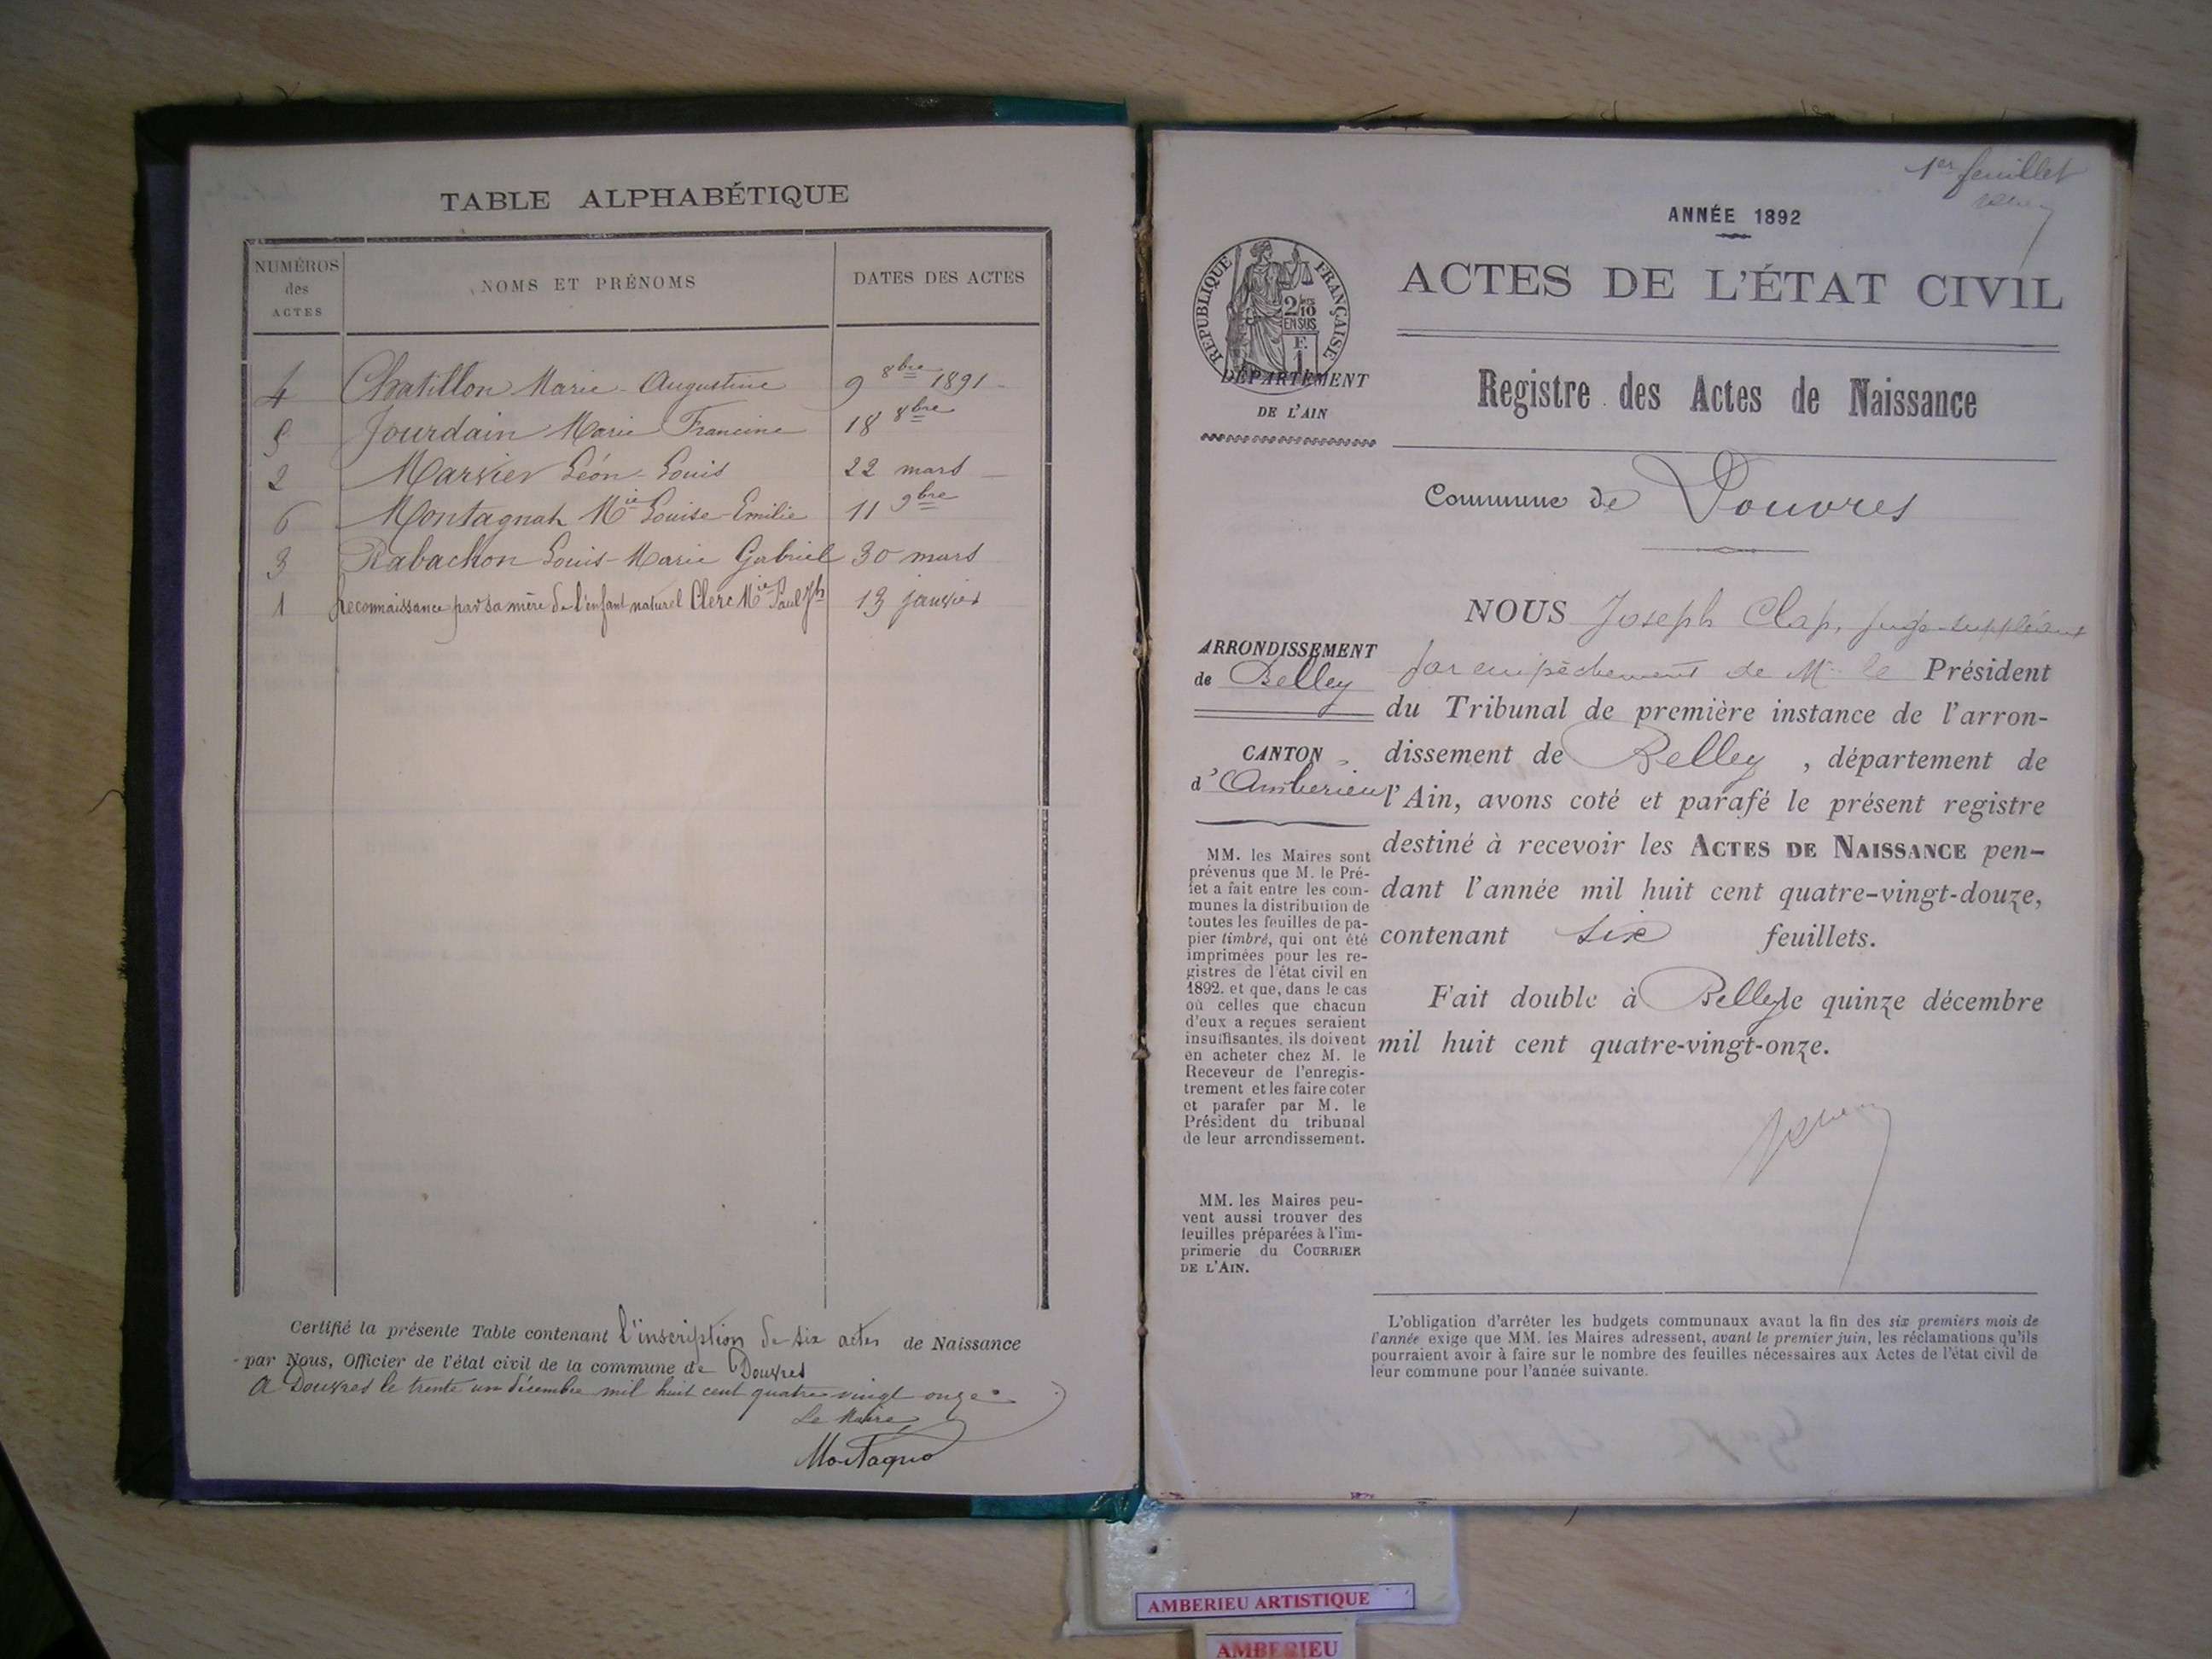 TABLE ALPHABÉTIQUE
NUMÉROS des ACTES
NOMS ET PRÉNOMS
DATES DES ACTES
4 Chatillon Marie-Augustine 9 8bre 1891
5 Jourdain Marie Francine 18 8bre
2 Marvier Léon-Louis 22 mars
6 Montagnat Mie Louise-Emilie 11 9bre
3 Rabachon Louis-Marie Gabriel 30 mars
1 Reconnaissance par sa mère de l'enfant naturel Clerc Mie Paul Jh 13 janvier
Certifié la présente Table contenant l'inscription de six actes de Naissance
par Nous, Officier de l'état civil de la commune de Douvres
A Douvres le trente un décembre mil huit cent quatre vingt onze.
Le Maire,
Montagna
1er feuillet
ANNÉE 1892
RÉPUBLIQUE FRANÇAISE
2/10
EN SUS
F.
1
ACTES DE L'ÉTAT CIVIL
DÉPARTEMENT
DE L'AIN
Registre des Actes de Naissance
Commune de Douvres
ARRONDISSEMENT
de Belley
CANTON
d'Amberieu
MM. les Maires sont
prévenus que M. le Pré-
fet a fait entre les com-
munes la distribution de
toutes les feuilles de pa-
pier timbré, qui ont été
imprimées pour les re-
gistres de l'état civil en
1892. et que, dans le cas
où celles que chacun
d'eux a reçues seraient
insuffisantes, ils doivent
en acheter chez M. le
Receveur de l'enregis-
trement et les faire coter
et parafer par M. le
Président du tribunal
de leur arrondissement.
MM. les Maires peu-
vent aussi trouver des
feuilles préparées à l'im-
primerie du COURRIER
DE L'AIN.
NOUS Joseph Clap, juge-suppléant
par empêchement de Mr le Président
du Tribunal de première instance de l'arron-
dissement de Belley, département de
l'Ain, avons coté et parafé le présent registre
destiné à recevoir les ACTES DE NAISSANCE pen-
dant l'année mil huit cent quatre-vingt-douze,
contenant six feuillets.
Fait double à Belley le quinze décembre
mil huit cent quatre-vingt-onze.
L'obligation d'arrêter les budgets communaux avant la fin des six premiers mois de
l'année exige que MM. les Maires adressent, avant le premier juin, les réclamations qu'ils
pourraient avoir à faire sur le nombre des feuilles nécessaires aux Actes de l'état civil de
leur commune pour l'année suivante.
AMBERIEU ARTISTIQUE
AMBERIEU